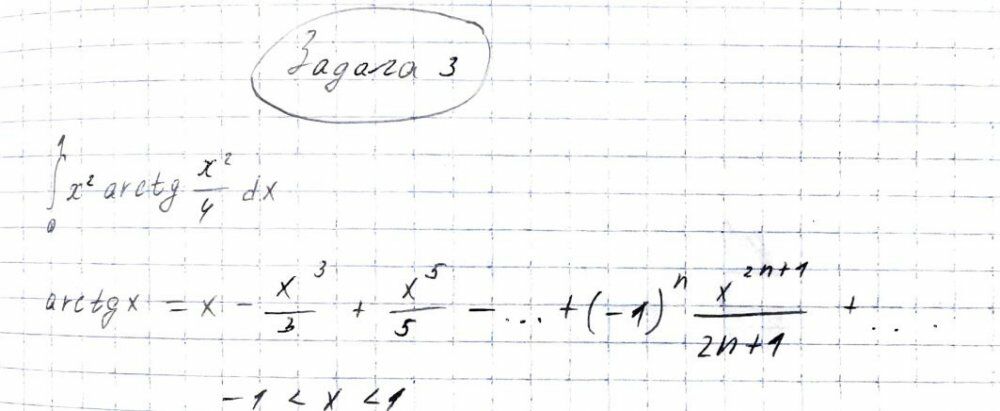 Задача 3
∫₀¹ x² arctg x²/4 dx
arctgx = x - x³/3 + x⁵/5 - ... + (-1)ⁿ x²ⁿ⁺¹/2n+1 + ...
-1 < x < 1